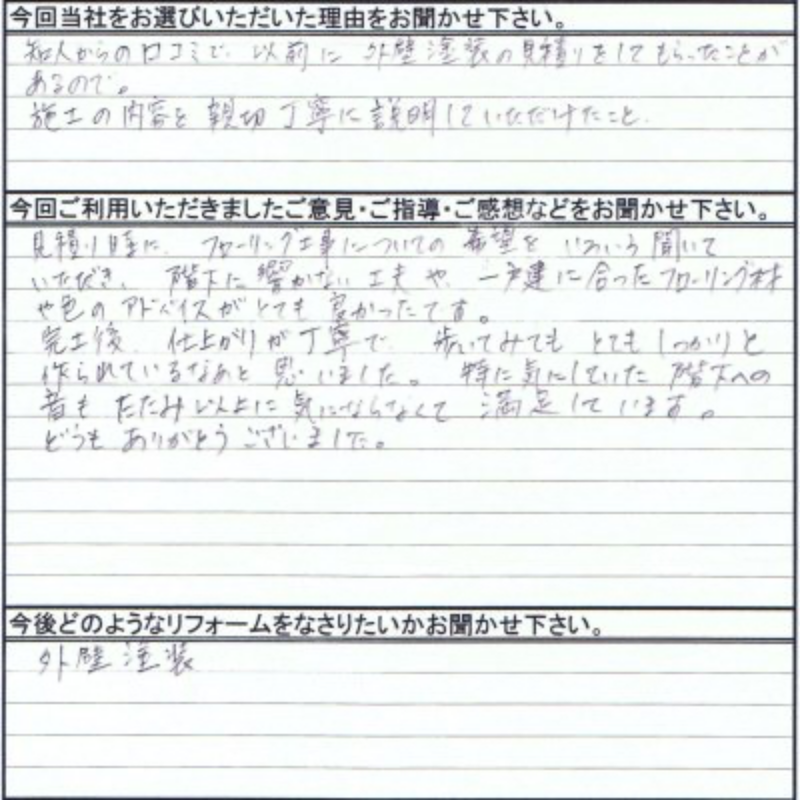 今回当社をお選びいただいた理由をお聞かせ下さい。
知人からの口コミで、以前に外壁塗装の見積りをしてもらったことが
あるので。
施工の内容を親切丁寧に説明していただけたこと。
今回ご利用いただきましたご意見・ご指導・ご感想などをお聞かせ下さい。
見積り時に、フローリング工事についての希望をいろいろ聞いて
いただき、階下に響かない工夫や、一戸建に合ったフローリング材
や色のアドバイスがとても良かったです。
完工後、仕上がりが丁寧で、歩いてみてもとてもしっかりと
作られているなあと思いました。特に気にしていた階下への
音もたたみ以上に気にならなくて満足しています。
どうもありがとうございました。
今後どのようなリフォームをなさりたいかお聞かせ下さい。
外壁塗装